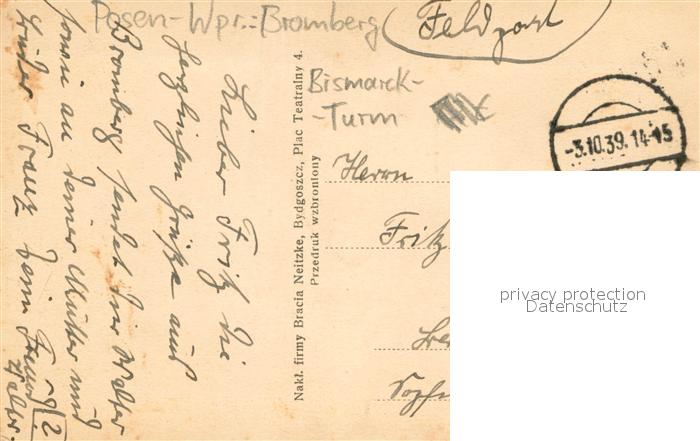 Posen-Wpr.: Bromberg
Feldpost
Bismarck-
-Turm
-3.10.39.14-15
Lieber Fritz die
herzlichsten Grüße aus
Bromberg sendet Dir Walter
sowie an deiner Mutter und
bruder Franz Dein Freund
Walter.
Nakł. firmy Bracia Neitzke, Bydgoszcz, Plac Teatralny 4.
Przedruk wzbroniony
Herrn
Fritz
privacy protection
Datenschutz